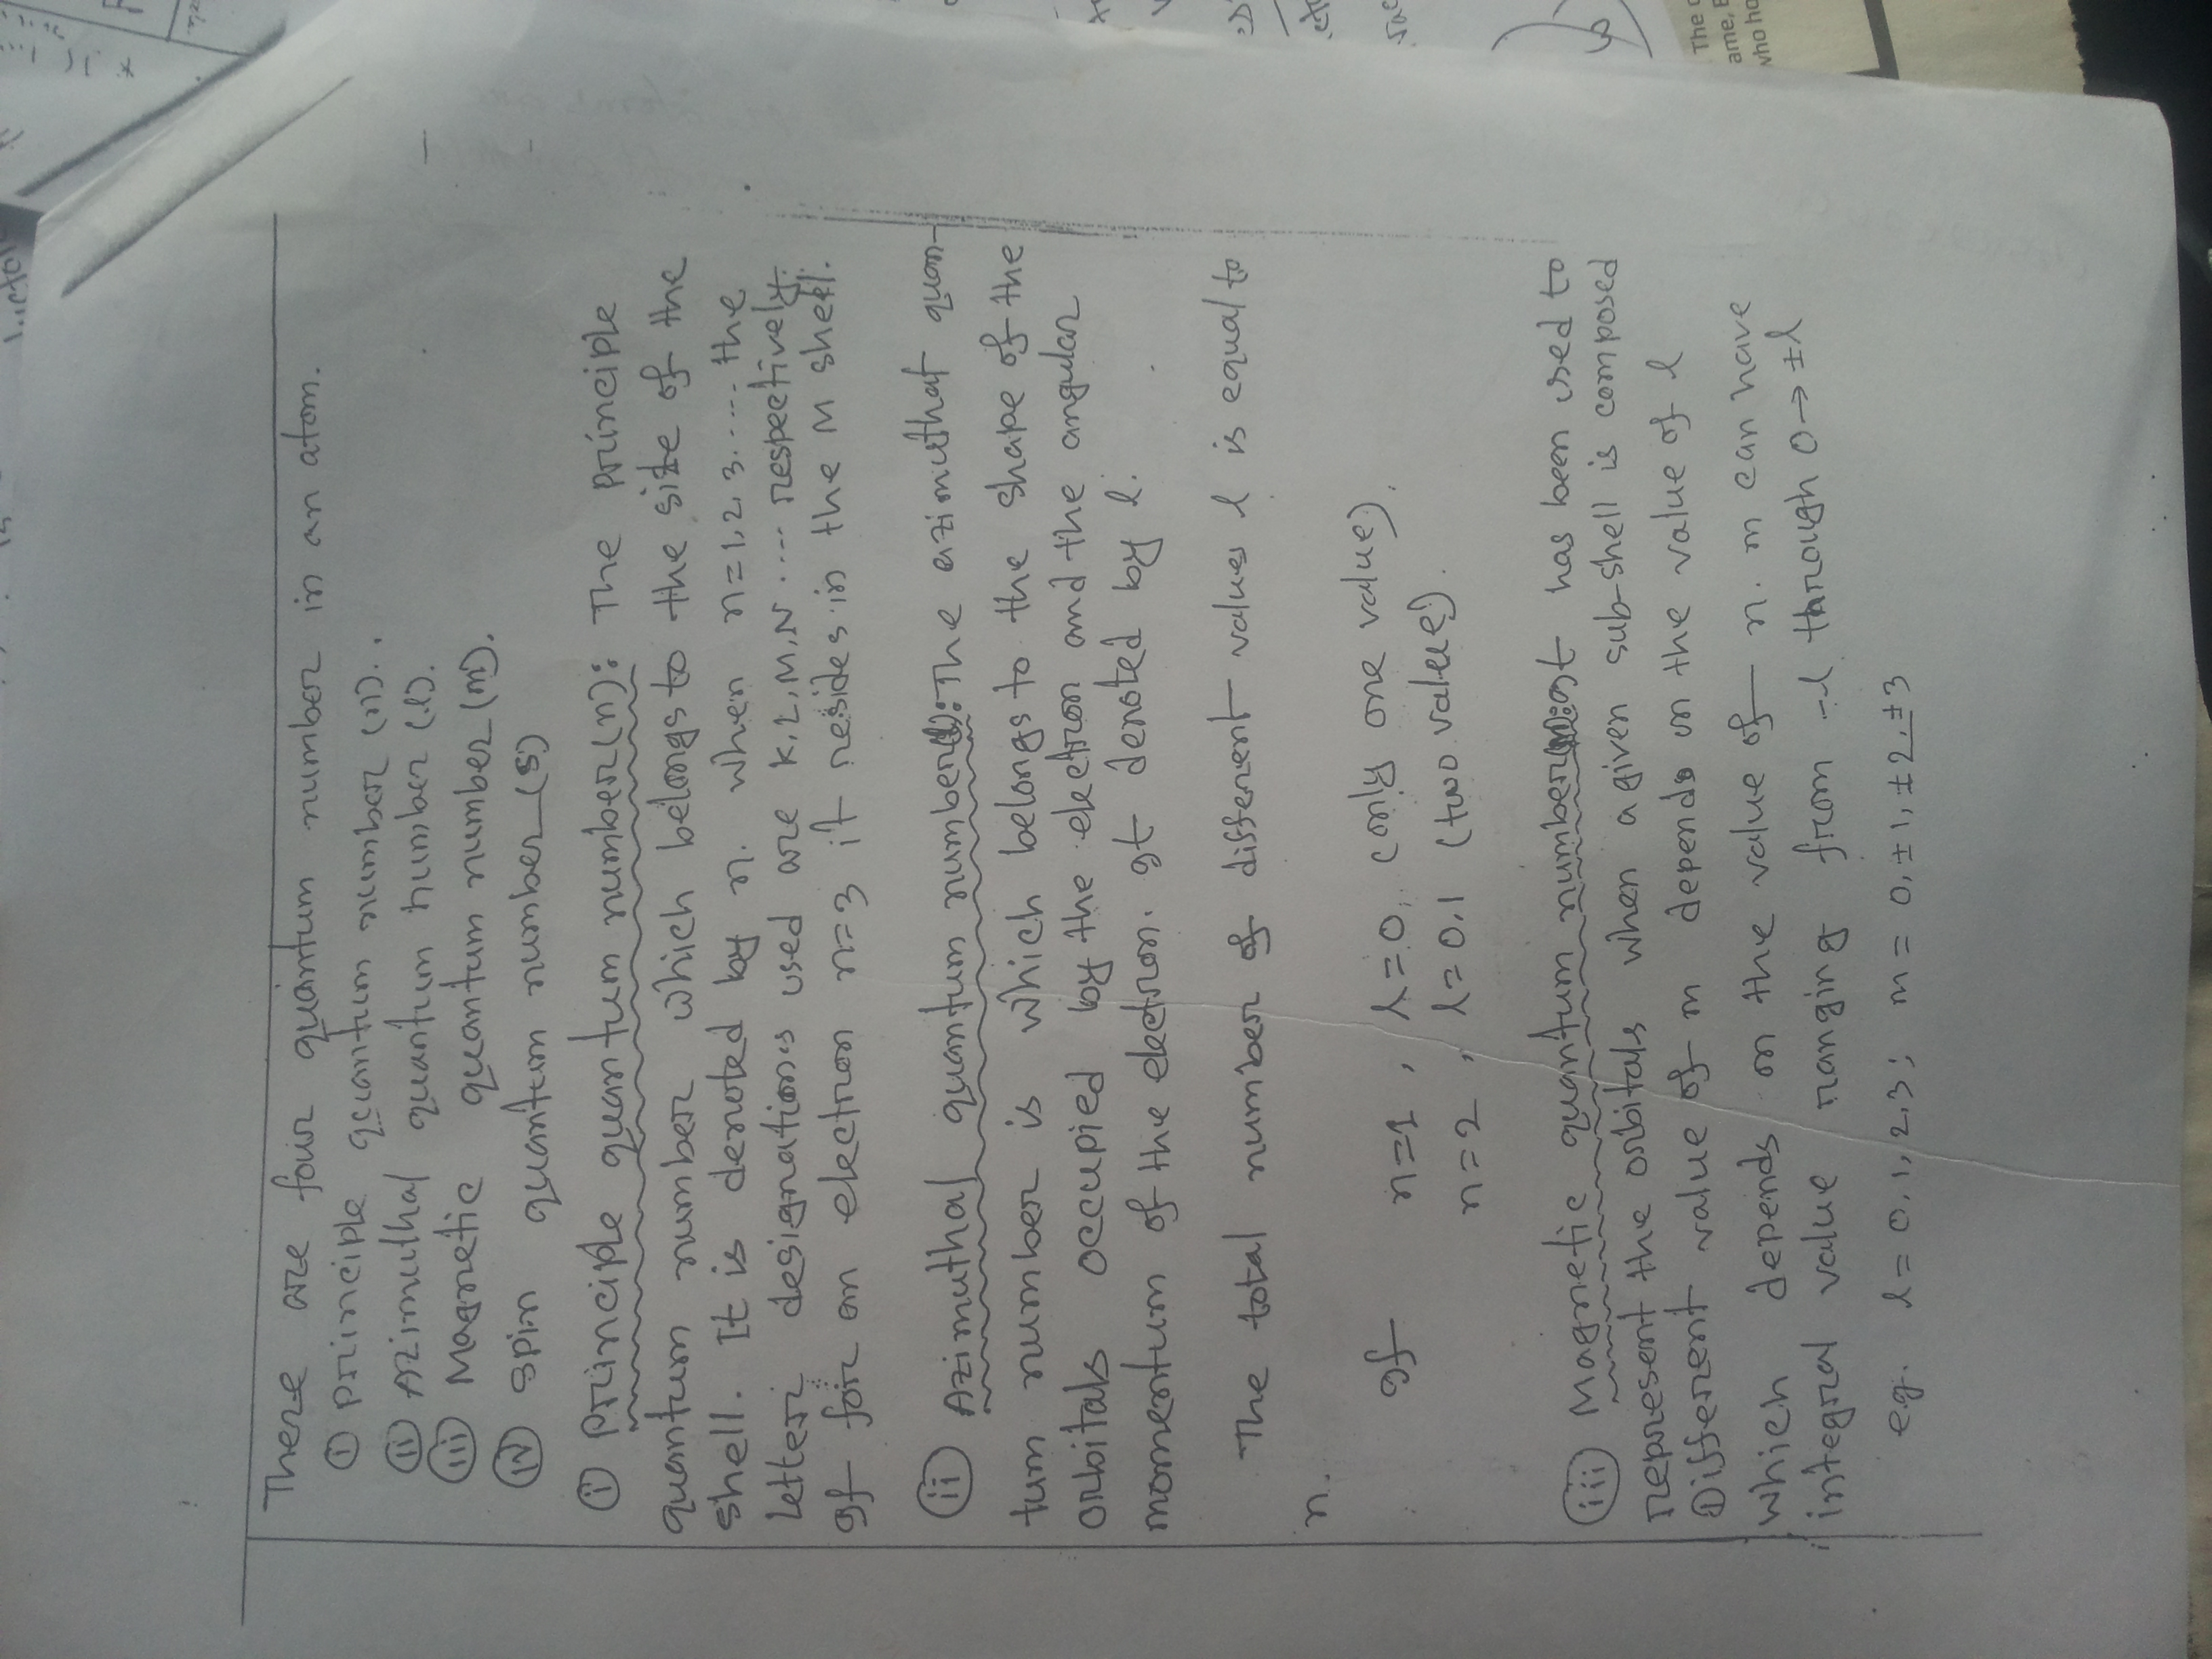 There are four quantum number in an atom.
i Principle quantum number (n). .
ii Azimuthal quantum number (l).
iii Magnetic quantum number (m).
iv Spin quantum number (s)
i Principle quantum number (n): The principle
quantum number which belongs to the size of the
shell. It is denoted by n. when n=1,2,3..... the
letter designations used are K,L,M,N .... respectively.
If for an electron n=3 it resides in the M shell.
ii Azimuthal quantum number(l): The azimuthat quan-
tum number is which belongs to the shape of the
orbitals occupied by the electron and the angular
momentum of the electron. It denoted by l.
The total number of different values l is equal to
n.
If n=1, l=0, (only one value),
n=2, l=0,1 (two value).
iii Magnetic quantum number(m): It has been used to
represent the orbitals when a given sub-shell is composed
Different value of m depends on the value of l
which depends on the value of n. m can have
integral value ranging from -l through 0→ ±l
e.g. l = 0,1,2,3; m = 0,±1,±2,±3
The
ame,
who ho